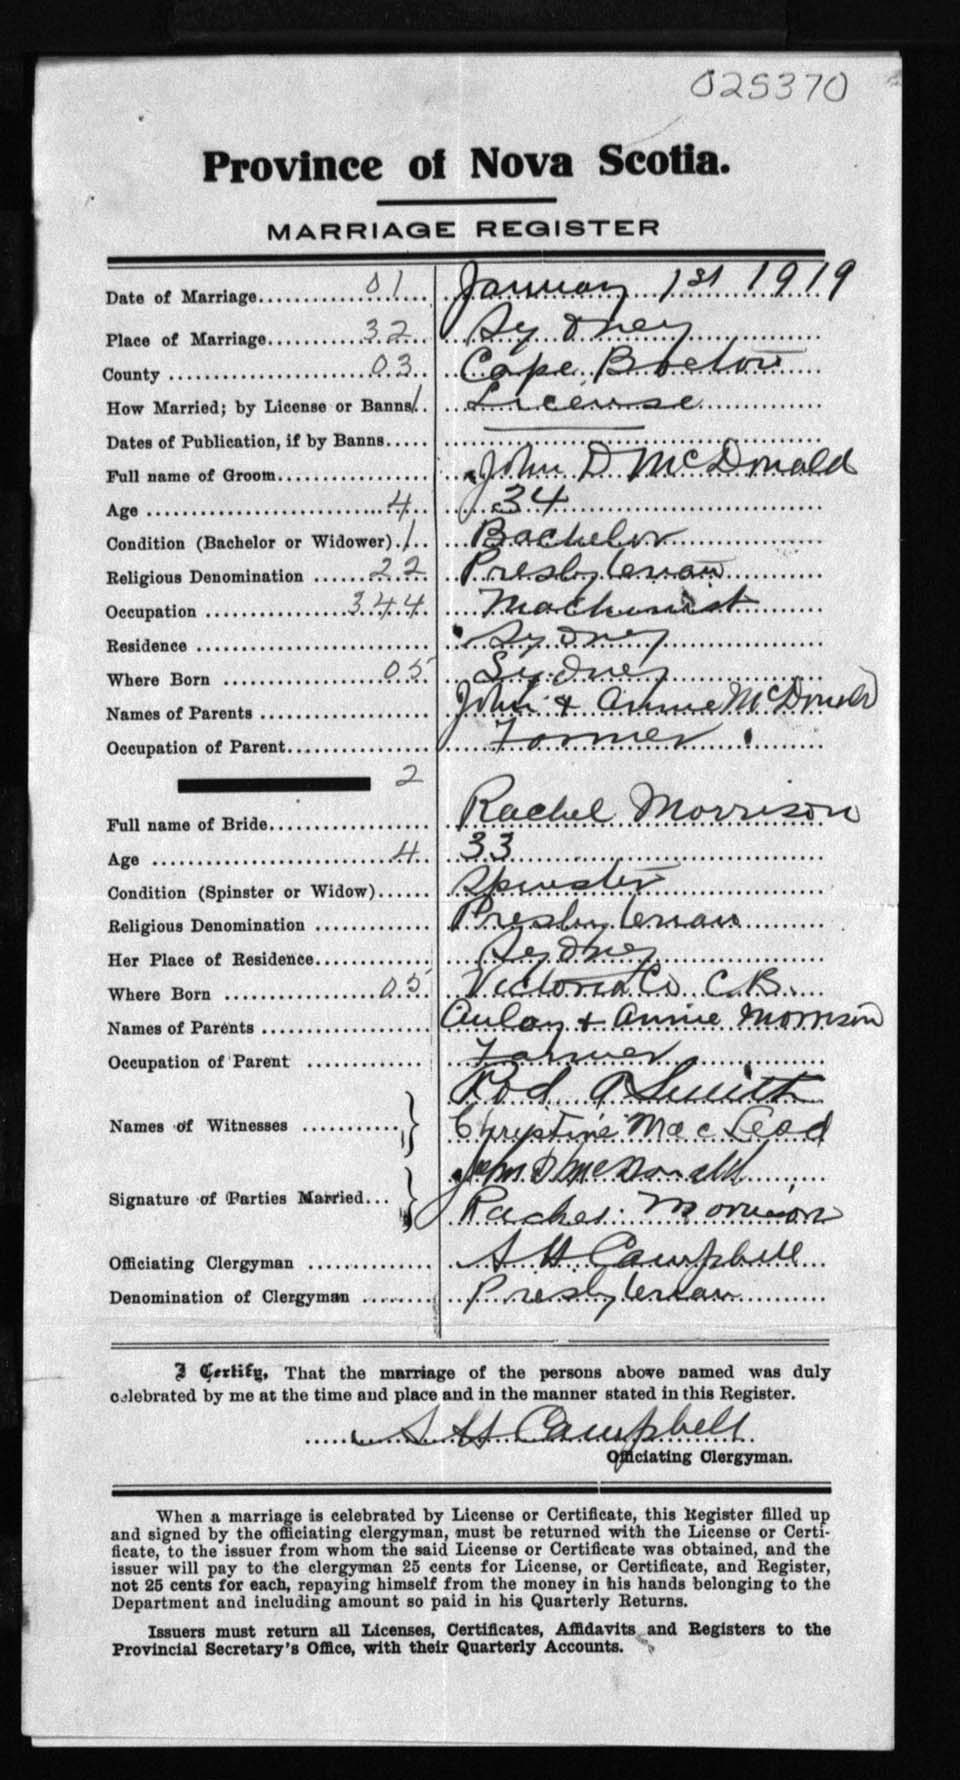 025370
Province of Nova Scotia.
MARRIAGE REGISTER
Date of Marriage 01 January 1st 1919
Place of Marriage 32 Sydney
County 03 Cape Breton
How Married; by License or Banns 1 License
Dates of Publication, if by Banns
Full name of Groom John D McDonald
Age 4 34
Condition (Bachelor or Widower) 1 Bachelor
Religious Denomination 22 Presbyterian
Occupation 344 Machinist
Residence Sydney
Where Born 05 Sydney
Names of Parents John & Annie McDonald
Occupation of Parent Farmer
2
Full name of Bride Rachel Morrison
Age 4 33
Condition (Spinster or Widow) Spinster
Religious Denomination Presbyterian
Her Place of Residence Sydney
Where Born 05 Victoria Co C.B.
Names of Parents Aulay & Annie Morrison
Occupation of Parent Farmer
Rod A Smith
Names of Witnesses Christine MacLeod
John D McDonald
Signature of Parties Married Rachel Morrison
Officiating Clergyman A H Campbell
Denomination of Clergyman Presbyterian
I Certify, That the marriage of the persons above named was duly
celebrated by me at the time and place and in the manner stated in this Register.
A H Campbell
Officiating Clergyman.
When a marriage is celebrated by License or Certificate, this Register filled up
and signed by the officiating clergyman, must be returned with the License or Certi-
ficate, to the issuer from whom the said License or Certificate was obtained, and the
issuer will pay to the clergyman 25 cents for License, or Certificate, and Register,
not 25 cents for each, repaying himself from the money in his hands belonging to the
Department and including amount so paid in his Quarterly Returns.
Issuers must return all Licenses, Certificates, Affidavits and Registers to the
Provincial Secretary's Office, with their Quarterly Accounts.